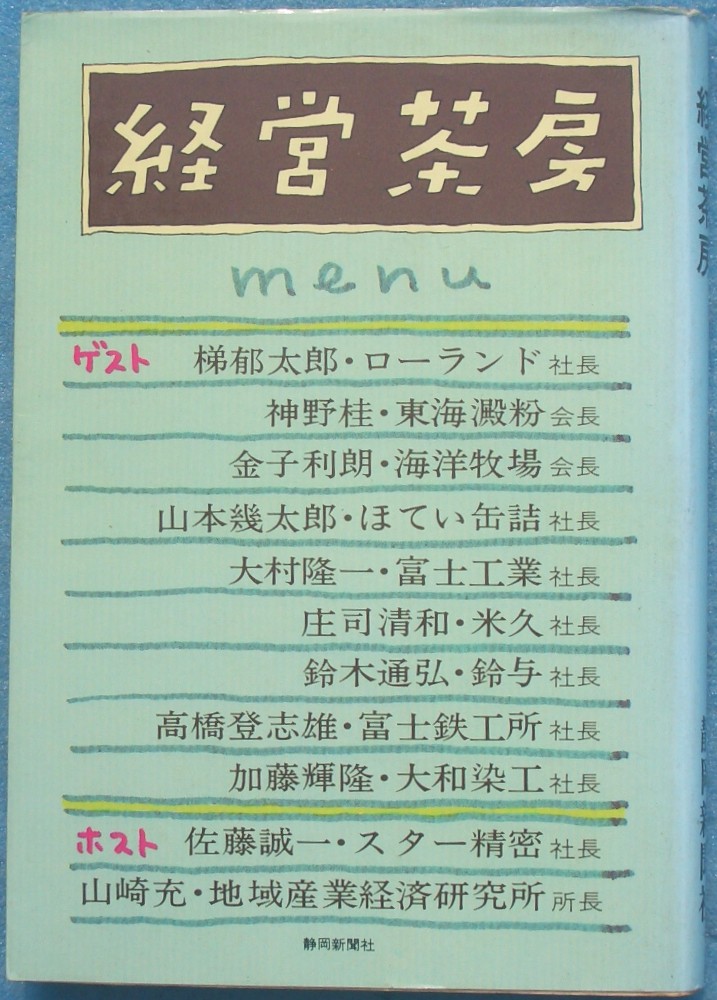 経営茶房
menu
ゲスト 梯郁太郎・ローランド社長
神野桂・東海澱粉会長
金子利朗・海洋牧場会長
山本幾太郎・ほてい缶詰社長
大村隆一・富士工業社長
庄司清和・米久社長
鈴木通弘・鈴与社長
高橋登志雄・富士鉄工所社長
加藤輝隆・大和染工社長
ホスト 佐藤誠一・スター精密社長
山崎充・地域産業経済研究所所長
静岡新聞社
経営茶房
静岡新聞社